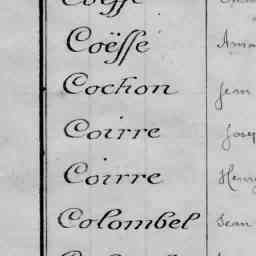 Coësse
Coësse Ama
Cochon Jean
Coirre Josep
Coirre Henry
Colombel Jean